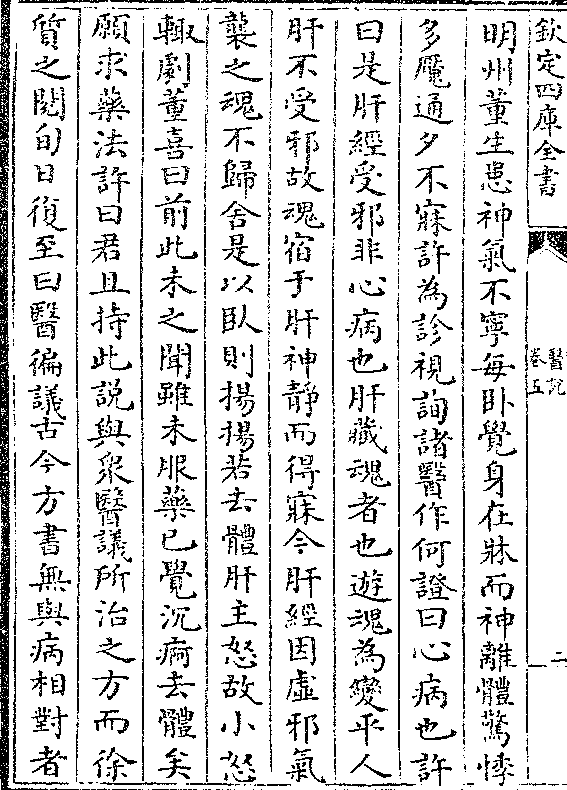 欽定四庫全書
醫說
卷五
二
明州董生患神氣不寧每卧覺身在牀而神離體驚悸
多魘通夕不寐許為診視詢諸醫作何證曰心病也許
曰是肝經受邪非心病也肝藏魂者也遊魂為變平人
肝不受邪故魂宿于肝神静而得寐今肝經因虚邪氣
襲之魂不歸舍是以卧則揚揚若去體肝主怒故小怒
輙劇董喜曰前此未之聞雖未服藥已覺沉痾去體矣
願求藥法許曰君且持此說與衆醫議所治之方而徐
質之閲旬日復至曰醫徧議古今方書無與病相對者